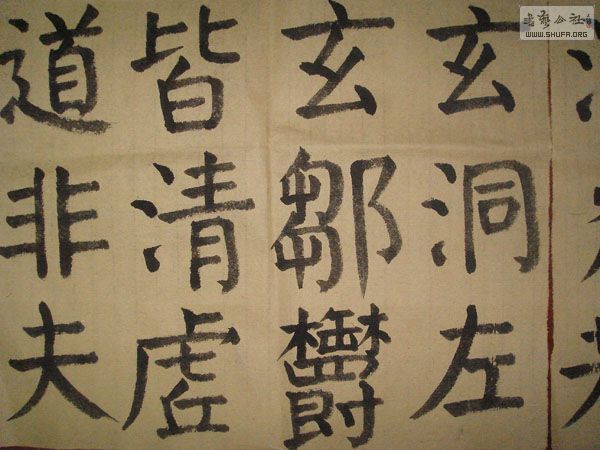 玄洞左
玄鄒欝
皆清虗
道非夫
書藝公社
WWW.SHUFA.ORG